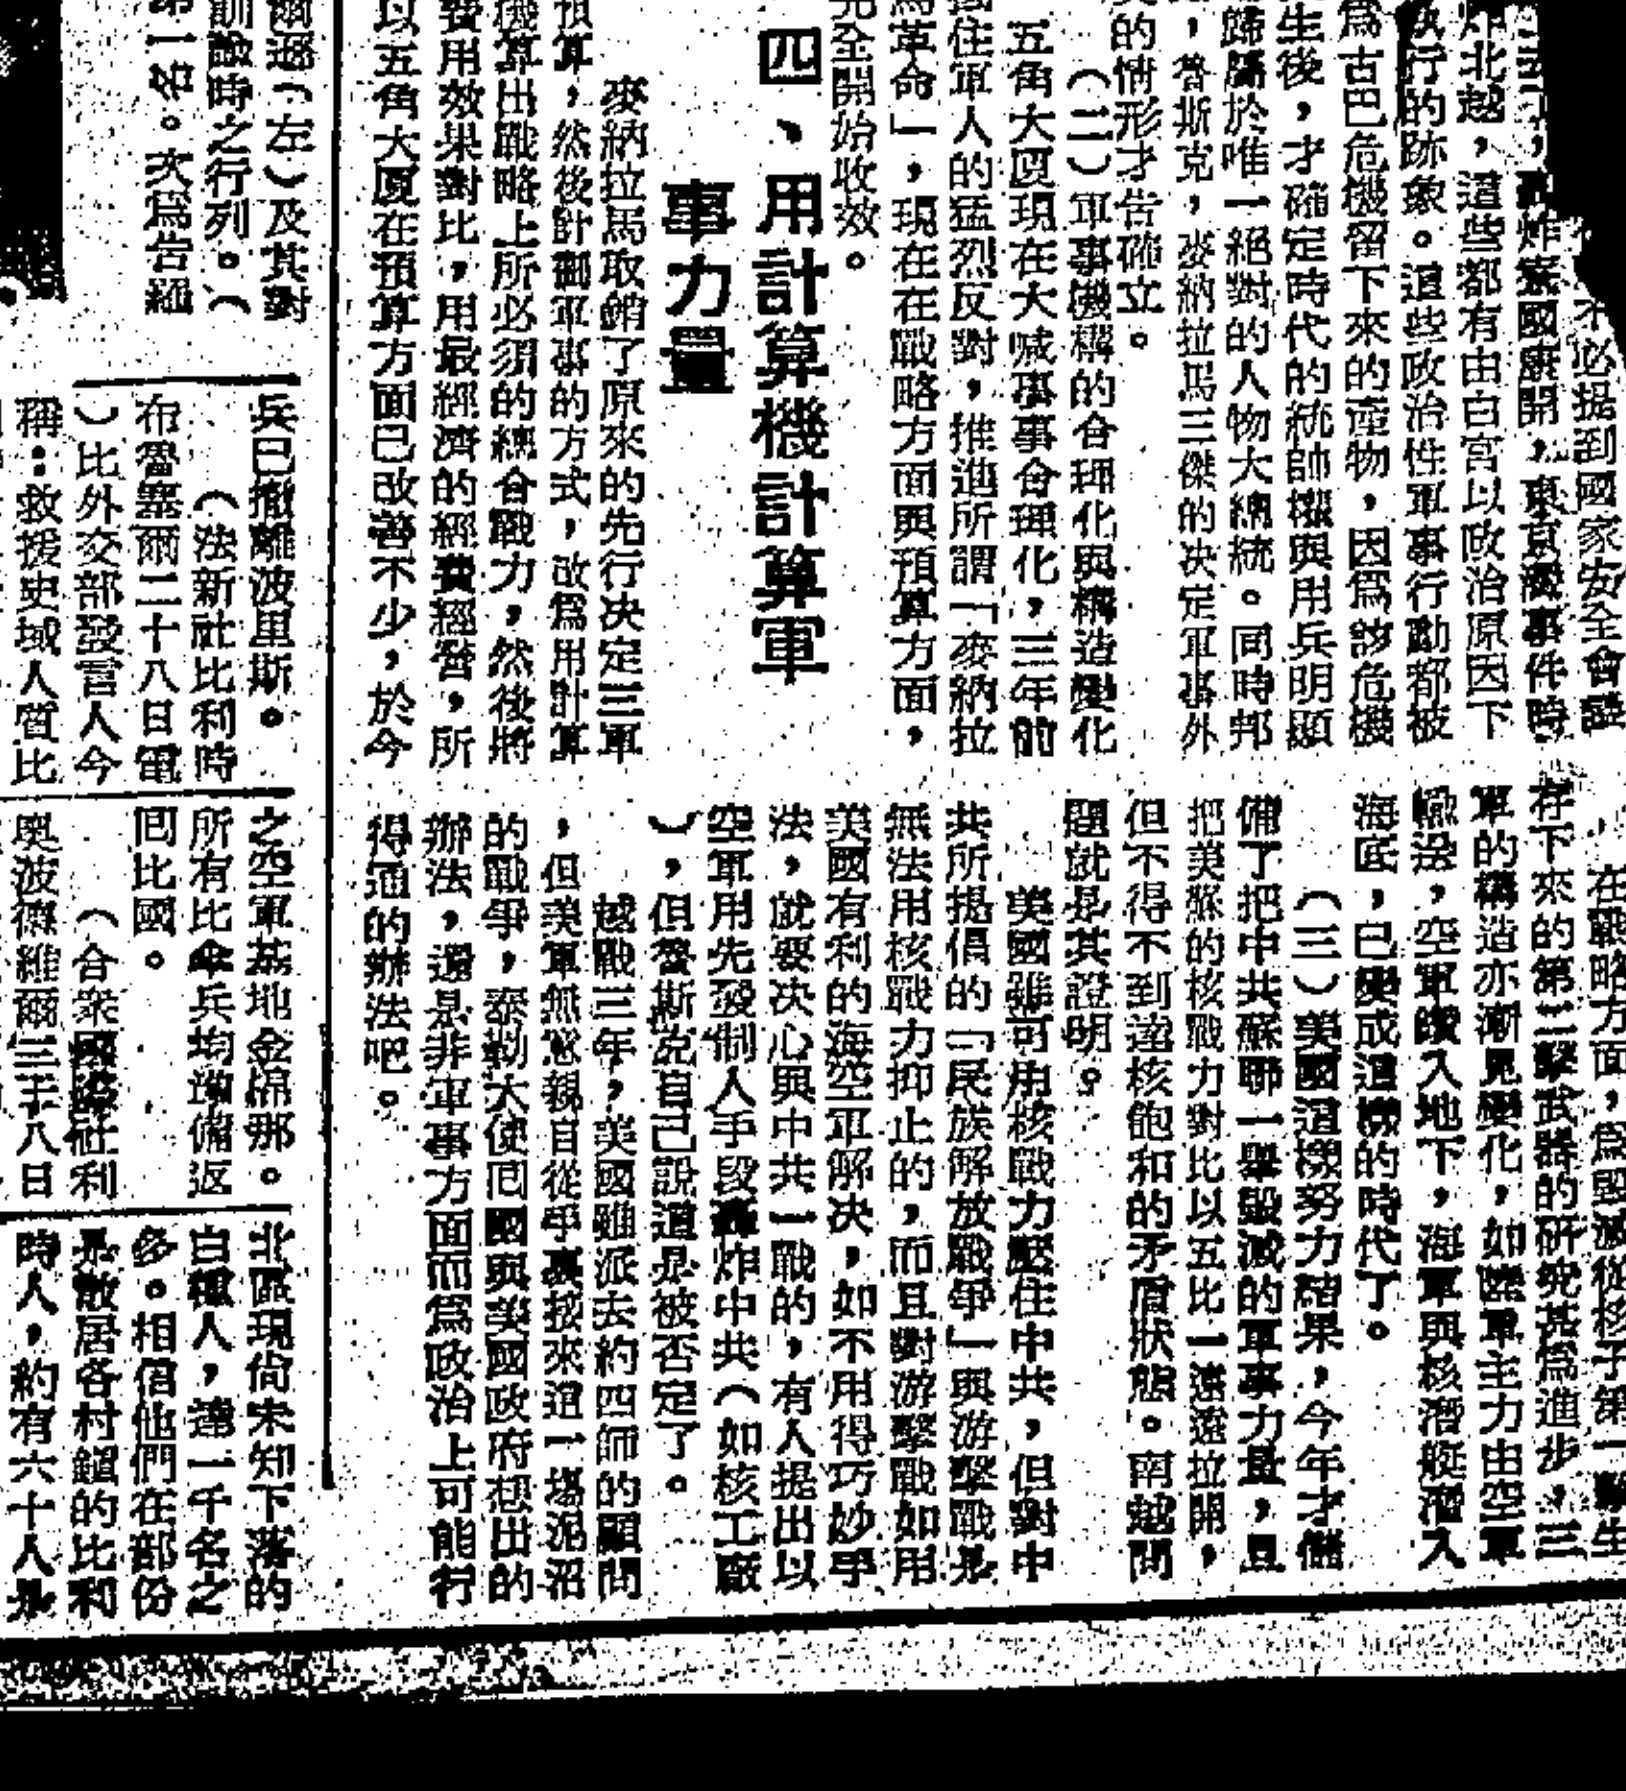 不必提到國家安全會議
，轟炸寮國康開，東京灣事件時
炸北越，這些都有由白宮以政治原因下
執行的跡象。這些政治性軍事行動都被
爲古巴危機留下來的產物，因爲該危機
生後，才確定時代的統帥權與用兵明顯
歸屬於唯一絕對的人物大總統。同時邦
，魯斯克，麥納拉馬三傑的决定軍事外
的情形才告確立。
（二）軍事機構的合理化與構造變化
五角大厦現在大喊事事合理化，三年前
住軍人的猛烈反對，推進所謂「麥納拉
馬革命」，現在在戰略方面與預算方面，
完全開始收效。
四、用計算機計算軍
事力量
麥納拉馬取銷了原來的先行决定三軍
預算，然後計劃軍事的方式，改爲用計算
機算出戰略上所必須的總合戰力，然後將
費用效果對比，用最經濟的經費經營，所
以五角大厦在預算方面已改善不少，於今
在戰略方面，爲毀滅從核子第一擊生
存下來的第二擊武器的研究甚爲進步，三
軍的構造亦漸見變化，如陸軍主力由空軍
輸送，空軍鑽入地下，海軍與核潛艇潛入
海底，已變成這樣的時代了。
（三）美國這樣努力結果，今年才儲
備了把中共蘇聯一舉毀滅的軍事力量，且
把美蘇的核戰力對比以五比一遠遠拉開，
但不得不到達核飽和的矛盾狀態。南越問
題就是其證明。
美國雖可用核戰力壓住中共，但對中
共所提倡的「民族解放戰爭」與游擊戰是
無法用核戰力抑止的，而且對游擊戰如用
美國有利的海空軍解决，如不用得巧妙爭
法，就要决心與中共一戰的，有人提出以
空軍用先發制人手段轟炸中共（如核工廠
），但魯斯克自己說這是被否定了。
越戰三年，美國雖派去約四師的顧問
，但美軍無意親自從爭裏接來這一場泥沼
的戰爭，泰勒大使囘國與美國政府想出的
辦法，還是非軍事方面而爲政治上可能行
得通的辦法吧。
爾遜（左）及其對
訓話時之行列。（
第一第。次爲告鯿
兵已撤離波里斯。
（法新社比利時
布魯塞爾二十八日電
）比外交部發言人今
稱：救援史域人質比
之空軍基地金棉那。
所有比傘兵均準備返
囘比國。
（合衆國際社利
奧波德維爾二十八日
北區現尙未知下落的
白種人，達一千名之
多。相信他們在部份
是散居各村鎮的比利
時人，約有六十人是